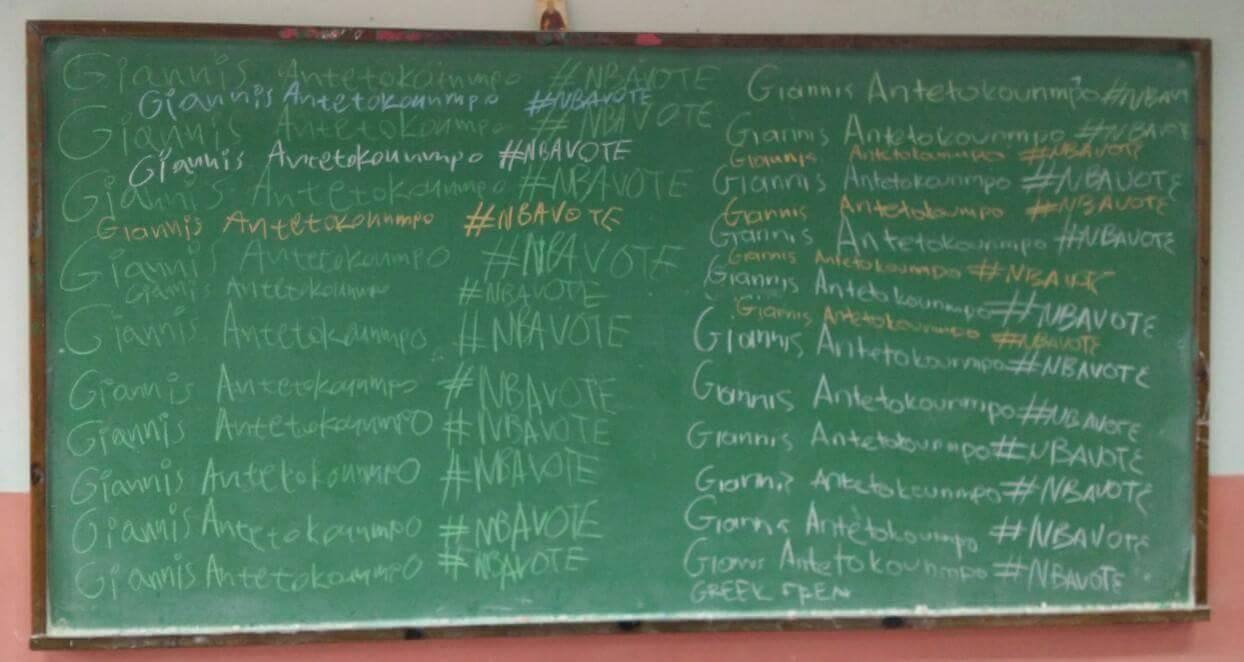 Giannis Antetokounmpo #NBAVOTE
Giannis Antetokounmpo #NBAVOTE
Giannis Antetokounmpo #NBAVOTE
Giannis Antetokounmpo #NBAVOTE
Giannis Antetokounmpo #NBAVOTE
Giannis Antetokounmpo #NBAVOTE
Giannis Antetokounmpo #NBAVOTE
Giannis Antetokounmpo #NBAVOTE
Giannis Antetokounmpo #NBAVOTE
Giannis Antetokounmpo #NBAVOTE
Giannis Antetokounmpo #NBAVOTE
Giannis Antetokounmpo #NBAVOTE
Giannis Antetokounmpo #NBAVOTE
Giannis Antetokounmpo #NBAVOTE
Giannis Antetokounmpo #NBAVOTE
Giannis Antetokounmpo #NBAVOTE
Giannis Antetokounmpo #NBAVOTE
Giannis Antetokounmpo #NBAVOTE
Giannis Antetokounmpo #NBAVOTE
Giannis Antetokounmpo #NBAVOTE
Giannis Antetokounmpo #NBAVOTE
Giannis Antetokounmpo #NBAVOTE
Giannis Antetokounmpo #NBAVOTE
Giannis Antetokounmpo #NBAVOTE
Giannis Antetokounmpo #NBAVOTE
Giannis Antetokounmpo #NBAVOTE
Giannis Antetokounmpo #NBAVOTE
Giannis Antetokounmpo #NBAVOTE
Giannis Antetokounmpo #NBAVOTE
GREEK